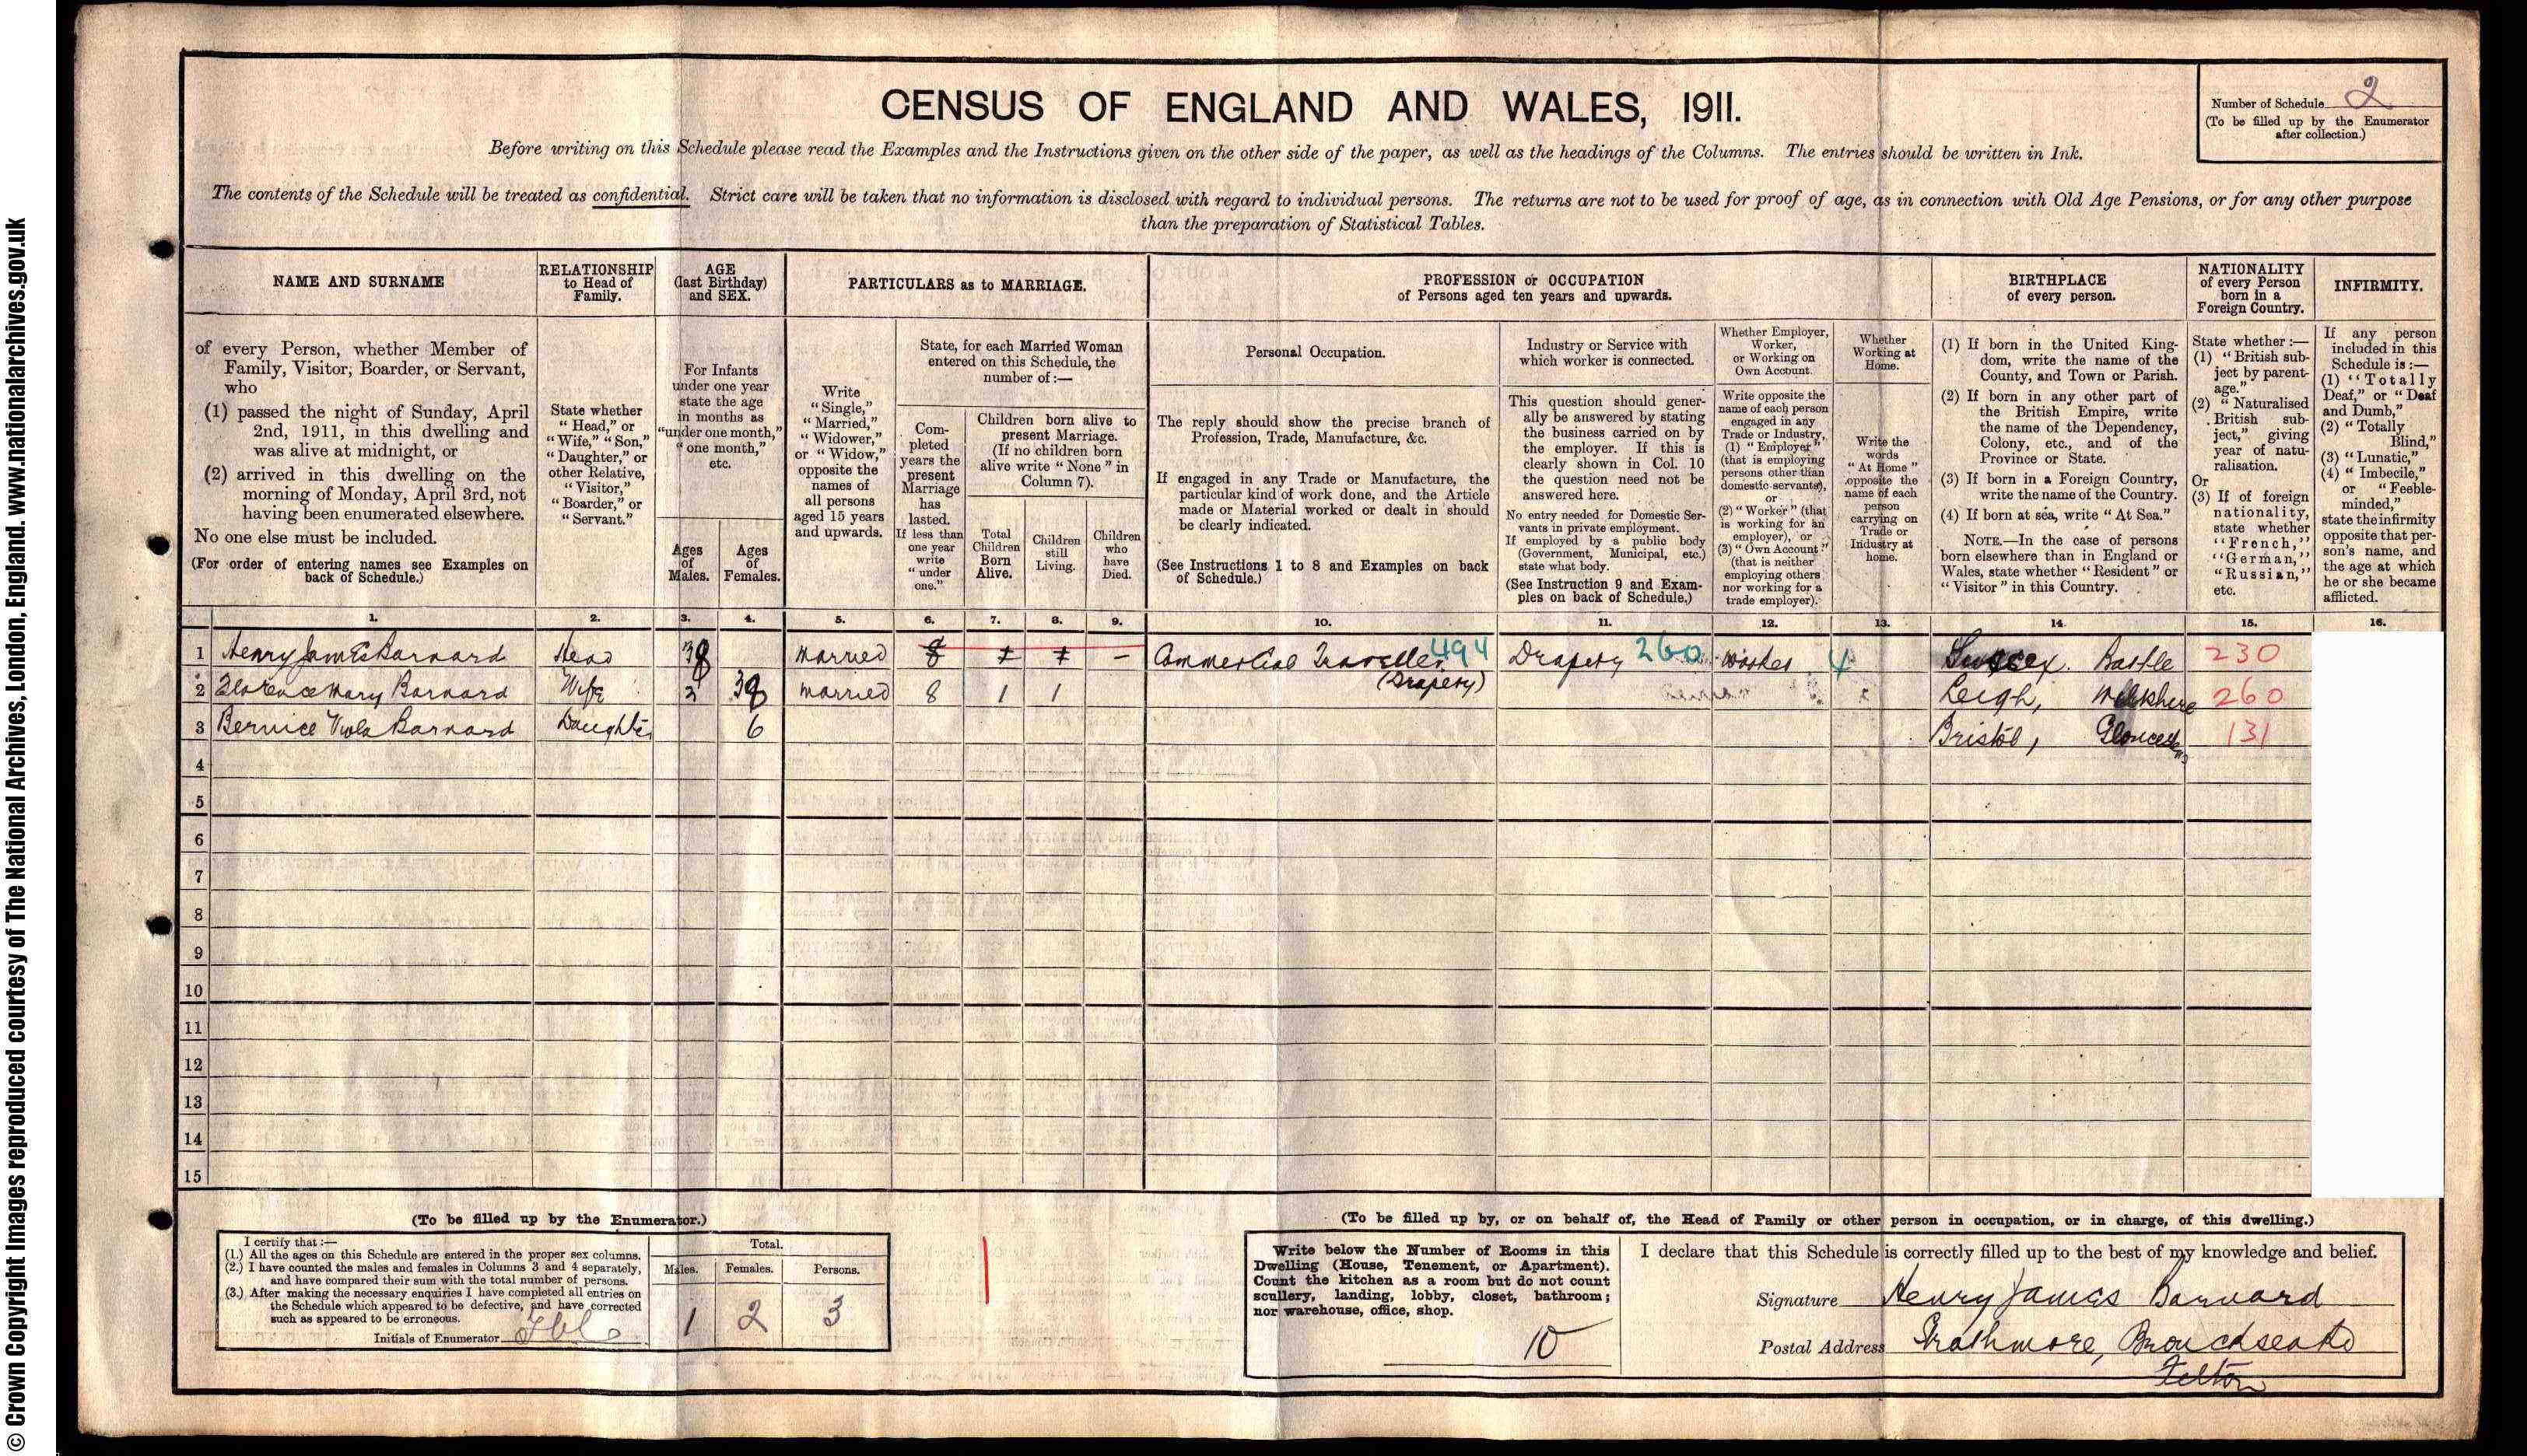 CENSUS OF ENGLAND AND WALES, 1911.
Number of Schedule 2
(To be filled up by the Enumerator
after collection.)
Before writing on this Schedule please read the Examples and the Instructions given on the other side of the paper, as well as the headings of the Columns. The entries should be written in Ink.
The contents of the Schedule will be treated as confidential. Strict care will be taken that no information is disclosed with regard to individual persons. The returns are not to be used for proof of age, as in connection with Old Age Pensions, or for any other purpose
than the preparation of Statistical Tables.
NAME AND SURNAME
of every Person, whether Member of
Family, Visitor, Boarder, or Servant,
who
(1) passed the night of Sunday, April
2nd, 1911, in this dwelling and
was alive at midnight, or
(2) arrived in this dwelling on the
morning of Monday, April 3rd, not
having been enumerated elsewhere.
No one else must be included.
(For order of entering names see Examples on
back of Schedule.)
RELATIONSHIP
to Head of
Family.
State whether
"Head," or
"Wife," "Son,"
"Daughter," or
other Relative,
"Visitor,"
"Boarder," or
"Servant."
AGE
(last Birthday)
and SEX.
For Infants
under one year
state the age
in months as
"under one month,"
"one month,"
etc.
Ages
of
Males.
Ages
of
Females.
PARTICULARS as to MARRIAGE.
Write
"Single,"
"Married,"
"Widower,"
or "Widow,"
opposite the
names of
all persons
aged 15 years
and upwards.
State, for each Married Woman
entered on this Schedule, the
number of:—
Com-
pleted
years the
present
Marriage
has
lasted.
If less than
one year
write
"under
one."
Children born alive to
present Marriage.
(If no children born
alive write "None" in
Column 7).
Total
Children
Born
Alive.
Children
still
Living.
Children
who
have
Died.
PROFESSION or OCCUPATION
of Persons aged ten years and upwards.
Personal Occupation.
The reply should show the precise branch of
Profession, Trade, Manufacture, &c.
If engaged in any Trade or Manufacture, the
particular kind of work done, and the Article
made or Material worked or dealt in should
be clearly indicated.
(See Instructions 1 to 8 and Examples on back
of Schedule.)
Industry or Service with
which worker is connected.
This question should gener-
ally be answered by stating
the business carried on by
the employer. If this is
clearly shown in Col. 10
the question need not be
answered here.
No entry needed for Domestic Ser-
vants in private employment.
If employed by a public body
(Government, Municipal, etc.)
state what body.
(See Instruction 9 and Exam-
ples on back of Schedule.)
Whether Employer,
Worker,
or Working on
Own Account.
Write opposite the
name of each person
engaged in any
Trade or Industry,
(1) "Employer"
(that is employing
persons other than
domestic servants),
or
(2) "Worker" (that
is working for an
employer), or
(3) "Own Account"
(that is neither
employing others
nor working for a
trade employer).
Whether
Working at
Home.
Write the
words
"At Home"
opposite the
name of each
person
carrying on
Trade or
Industry at
home.
BIRTHPLACE
of every person.
(1) If born in the United King-
dom, write the name of the
County, and Town or Parish.
(2) If born in any other part of
the British Empire, write
the name of the Dependency,
Colony, etc., and of the
Province or State.
(3) If born in a Foreign Country,
write the name of the Country.
(4) If born at sea, write "At Sea."
NOTE.—In the case of persons
born elsewhere than in England or
Wales, state whether "Resident" or
"Visitor" in this Country.
NATIONALITY
of every Person
born in a
Foreign Country.
State whether:—
(1) "British sub-
ject by parent-
age."
(2) "Naturalised
British sub-
ject," giving
year of natu-
ralisation.
Or
(3) If of foreign
nationality,
state whether
"French,"
"German,"
"Russian,"
etc.
INFIRMITY.
If any person
included in this
Schedule is:—
(1) "Totally
Deaf," or "Deaf
and Dumb,"
(2) "Totally
Blind,"
(3) "Lunatic,"
(4) "Imbecile,"
or "Feeble-
minded,"
state the infirmity
opposite that per-
son's name, and
the age at which
he or she became
afflicted.
1. 2. 3. 4. 5. 6. 7. 8. 9. 10. 11. 12. 13. 14. 15. 16.
1 Henry James Barnard Head 38 Married 8 1 1 — Commercial Traveller 494 Drapery 260 Worker 4 Sussex. Battle 230
(Drapery)
2 Florence Mary Barnard Wife 38 Married 8 1 1 Leigh, 260
3 Bernice Viola Barnard Daughter 6 Bristol, 131
4
5
6
7
8
9
10
11
12
13
14
15
(To be filled up by the Enumerator.)
I certify that:—
(1.) All the ages on this Schedule are entered in the proper sex columns.
(2.) I have counted the males and females in Columns 3 and 4 separately,
and have compared their sum with the total number of persons.
(3.) After making the necessary enquiries I have completed all entries on
the Schedule which appeared to be defective, and have corrected
such as appeared to be erroneous.
Initials of Enumerator
Total.
Males. Females. Persons.
1 2 3
(To be filled up by, or on behalf of, the Head of Family or other person in occupation, or in charge, of this dwelling.)
Write below the Number of Rooms in this
Dwelling (House, Tenement, or Apartment).
Count the kitchen as a room but do not count
scullery, landing, lobby, closet, bathroom;
nor warehouse, office, shop.
10
I declare that this Schedule is correctly filled up to the best of my knowledge and belief.
Signature Henry James Barnard
Postal Address Strathmore,
© Crown Copyright Images reproduced courtesy of The National Archives, London, England. www.nationalarchives.gov.uk